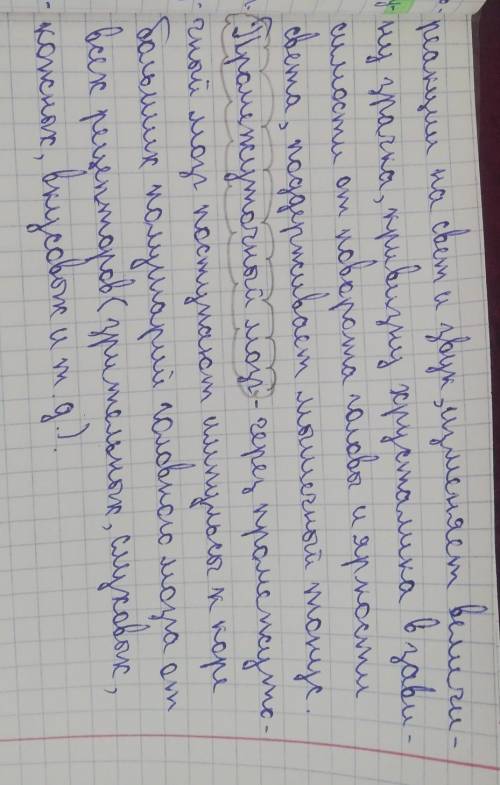 реакции на свет и звук, изменяет величи-
ну зрачка, кривизну хрусталика в зави-
симости от поворота головы и яркости
света, поддерживает мышечный тонус.
Промежуточный мозг - через промежуто-
чный мозг поступают импульсы к коре
больших полушарий головного мозга от
всех рецепторов (зрительных, слуховых,
кожных, вкусовых и т.д.).